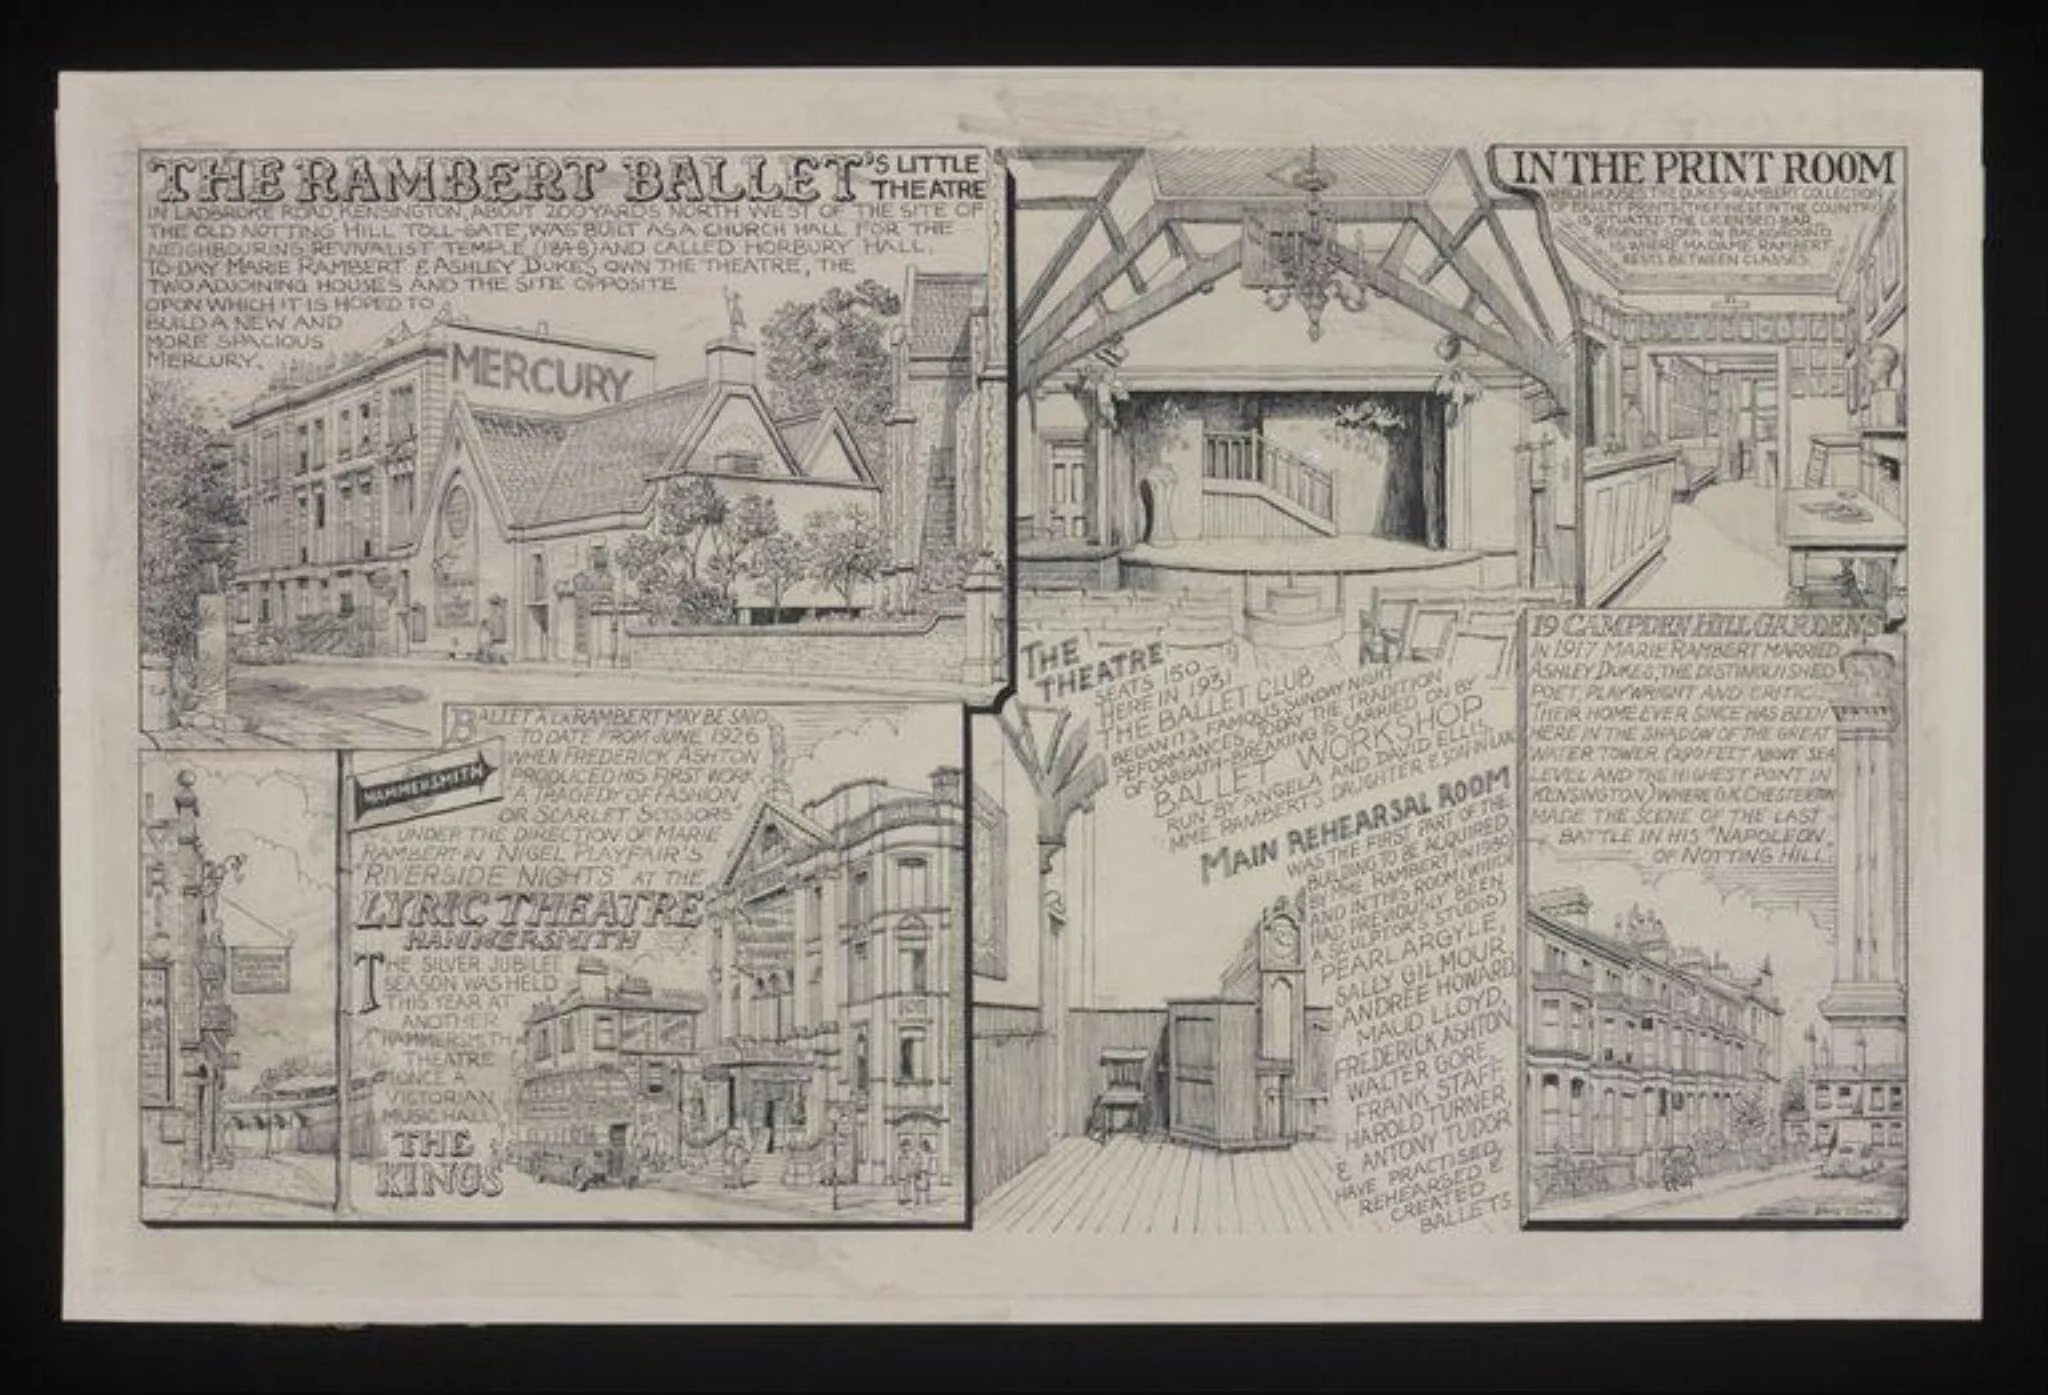 THE RAMBERT BALLET'S LITTLE
THEATRE
IN LADBROKE ROAD, KENSINGTON, ABOUT 200 YARDS NORTH WEST OF THE SITE OF
THE OLD NOTTING HILL TOLL-GATE, WAS BUILT AS A CHURCH HALL FOR THE
NEIGHBOURING REVIVALIST TEMPLE (1848) AND CALLED HORBURY HALL.
TO-DAY MARIE RAMBERT & ASHLEY DUKES OWN THE THEATRE, THE
TWO ADJOINING HOUSES AND THE SITE OPPOSITE
OPON WHICH IT IS HOPED TO
BUILD A NEW AND
MORE SPACIOUS
MERCURY.
MERCURY
THEATRE
BALLET A LA RAMBERT MAY BE SAID
TO DATE FROM JUNE 1926
WHEN FREDERICK ASHTON
PRODUCED HIS FIRST WORK
A TRAGEDY OF FASHION
OR SCARLET SCISSORS
UNDER THE DIRECTION OF MARIE
RAMBERT IN NIGEL PLAYFAIR'S
"RIVERSIDE NIGHTS" AT THE
LYRIC THEATRE
HAMMERSMITH
HAMMERSMITH
THE SILVER JUBILEE
SEASON WAS HELD
THIS YEAR AT
ANOTHER
HAMMERSMITH
THEATRE
ONCE A
VICTORIAN
MUSIC HALL
THE
KINGS
THE
THEATRE
SEATS 150
HERE IN 1931
THE BALLET CLUB
BEGAN ITS FAMOUS SUNDAY NIGHT
PEFORMANCES. TODAY THE TRADITION
OF SABBATH-BREAKING IS CARRIED ON BY
BALLET WORKSHOP
RUN BY ANGELA AND DAVID ELLIS,
MME. RAMBERT'S DAUGHTER & SON-IN-LAW
MAIN REHEARSAL ROOM
WAS THE FIRST PART OF THE
BUILDING TO BE ACQUIRED
BY MME RAMBERT (IN 1930)
AND IN THIS ROOM (WHICH
HAD PREVIOUSLY BEEN
A SCULPTOR'S STUDIO)
PEARL ARGYLE,
SALLY GILMOUR
ANDRÉE HOWARD,
MAUD LLOYD,
FREDERICK ASHTON
WALTER GORE,
FRANK STAFF
HAROLD TURNER,
& ANTONY TUDOR
HAVE PRACTISED,
REHEARSED &
CREATED
BALLETS
IN THE PRINT ROOM
WHICH HOUSES THE DUKES-RAMBERT COLLECTION
OF BALLET PRINTS, THE FINEST IN THE COUNTRY,
IS SITUATED THE LICENSED BAR.
REGENCY SOFA IN BACKGROUND
IS WHERE MADAME RAMBERT
RESTS BETWEEN CLASSES.
19 CAMPDEN HILL GARDENS
IN 1917 MARIE RAMBERT MARRIED
ASHLEY DUKES, THE DISTINGUISHED
POET, PLAYWRIGHT AND CRITIC.
THEIR HOME EVER SINCE HAS BEEN
HERE IN THE SHADOW OF THE GREAT
WATER TOWER (290 FEET ABOVE SEA
LEVEL AND THE HIGHEST POINT IN
KENSINGTON) WHERE G.K. CHESTERTON
MADE THE SCENE OF THE LAST
BATTLE IN HIS "NAPOLEON
OF NOTTING HILL.